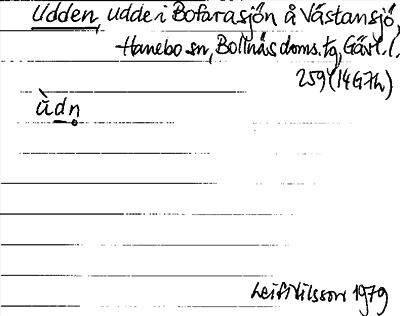 Udden, udde i Bofarasjön å Västansjö,
Hanebo sn, Bollnäs doms. tg, Gävl. l.
259 (14G7h)
ùdn̥
Leif Nilsson 1979